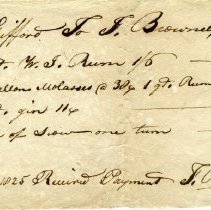 Gifford To J. Brownell
W. I. Rum 1/6
Gallon Molasses @ 38¢ 1 qt. Rum
gin 11¢
of Scow one turn
1825 Received Payment J.